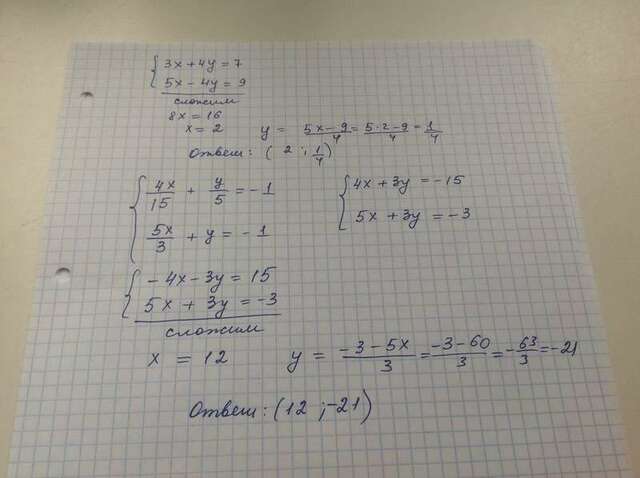 { 3x + 4y = 7
5x - 4y = 9
сложим
8x = 16
x = 2 y = (5x - 9)/4 = (5·2 - 9)/4 = 1/4
Ответ: ( 2 ; 1/4 )
{ 4x/15 + y/5 = -1 { 4x + 3y = -15
5x/3 + y = -1 5x + 3y = -3
{ -4x - 3y = 15
5x + 3y = -3
сложим
x = 12 y = (-3 - 5x)/3 = (-3 - 60)/3 = -63/3 = -21
Ответ: (12 ; -21)